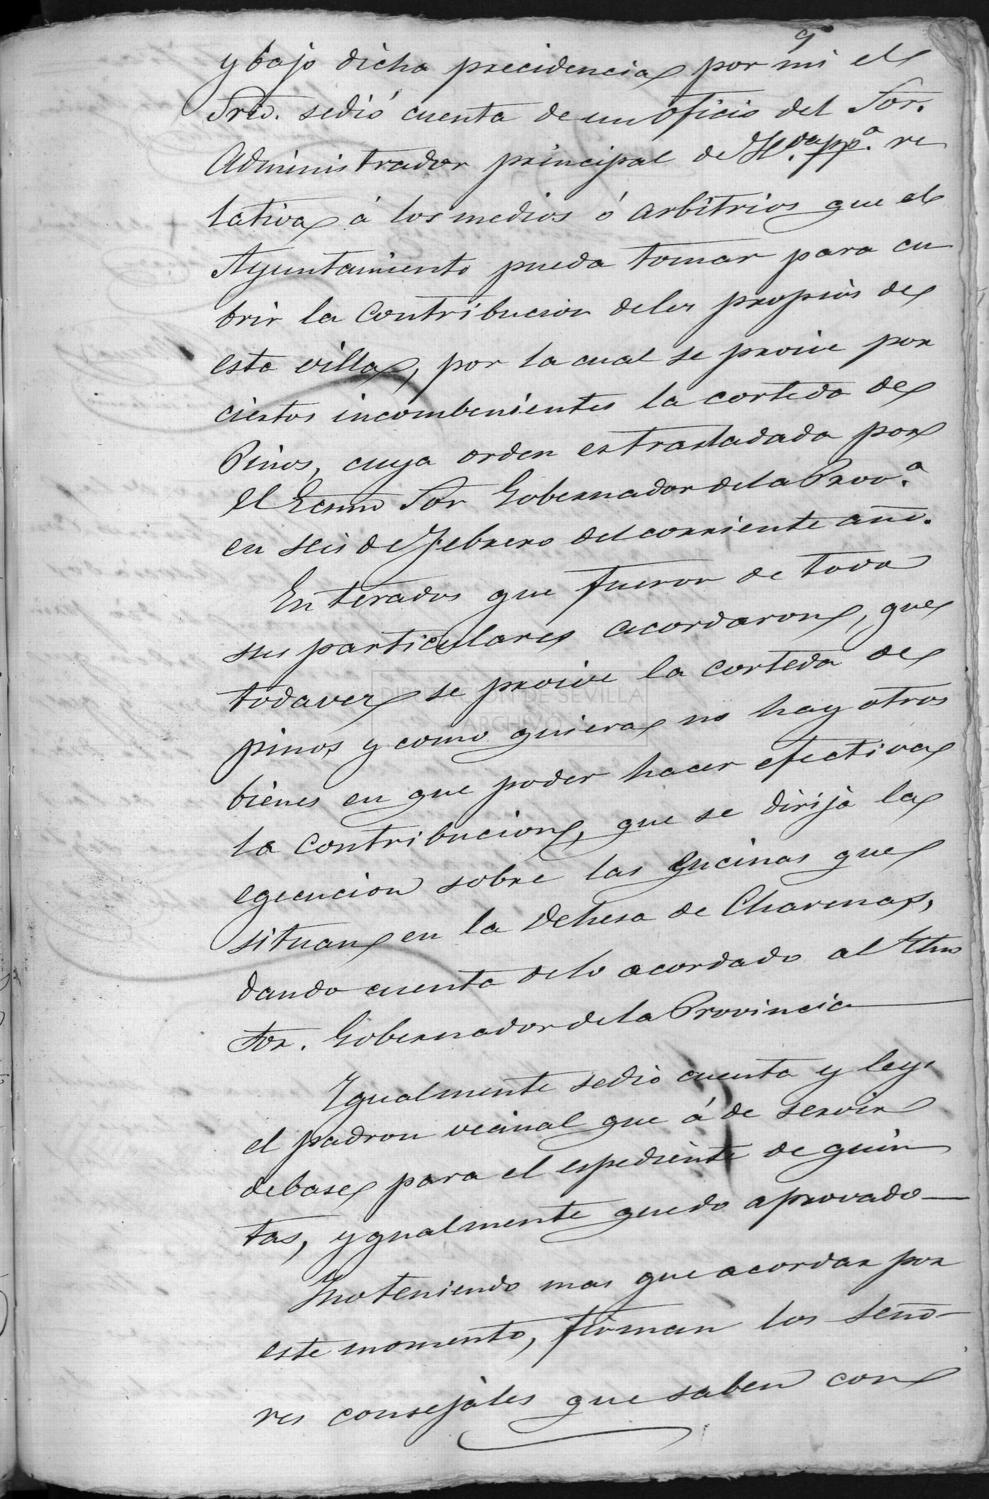 9
y bajo dicha precidencia por mi el
Srio. sedió cuenta de un oficio del Sor.
Administrador principal de Hda. pp.ª re
lativa á los medios ó arbitrios que el
Ayuntamiento pueda tomar para cu
brir la contribucion delos propios de
esta villa, por la cual se proive por
ciertos incombenientes la corteda de
Pinos, cuya orden es trasladada por
el Ecmo Sor Gobernador dela Prov.ª
en seis de Febrero del corriente año.
Enterados que fueron de todo
sus particulares acordaron, que
todavez se proive la corteda de
pinos y como quiera no hay otros
bienes en que poder hacer efectiva
la contribucion, que se dirija la
egecucion sobre las encinas que
situan en la Dehesa de Charenas,
dando cuenta delo acordado al Ylmo
Sor. Gobernador dela Provincia
Igualmente sedió cuenta y ley
el padron vecinal que á de servir
debase para el espediente de quin
tas, y gualmente quedo aprovado
Y no teniendo mas que acordar por
este momento, firman los seño-
res consejales que saben con
DIPUTACIÓN DE SEVILLA
ARCHIVO